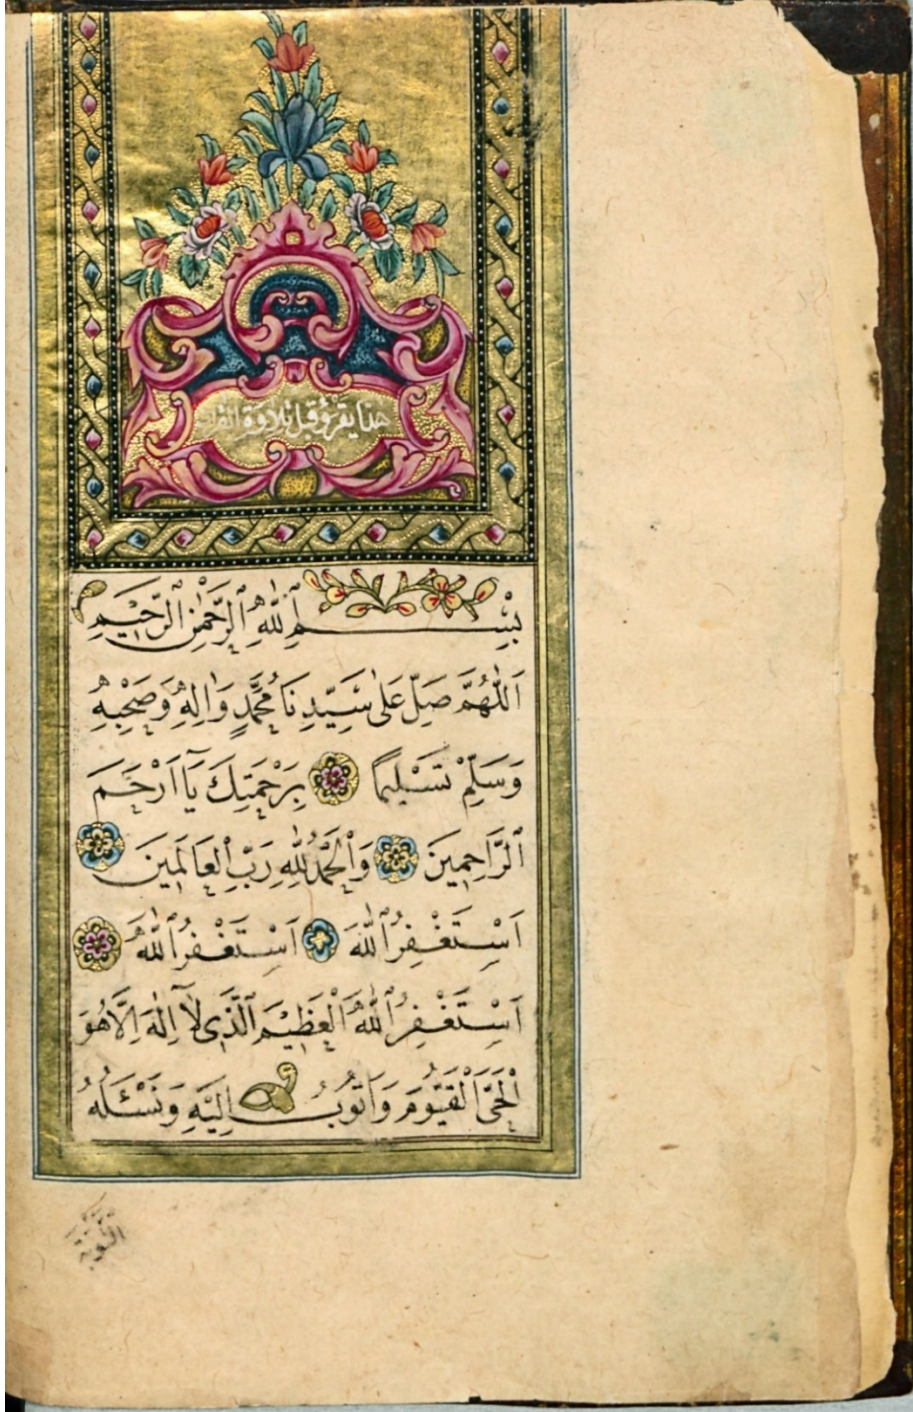 هذا يقرؤ قبل تلاوة القرآن
بِسْمِ اللّٰهِ الرَّحْمٰنِ الرَّحِيْمِ
اَللّٰهُمَّ صَلِّ عَلٰى سَيِّدِنَا مُحَمَّدٍ وَاٰلِهٖ وَصَحْبِهٖ
وَسَلِّمْ تَسْلِيمًا بِرَحْمَتِكَ يَٓا اَرْحَمَ
الرَّاحِمِينَ وَالْحَمْدُ لِلّٰهِ رَبِّ الْعَالَمِينَ
اَسْتَغْفِرُ اللّٰهَ اَسْتَغْفِرُ اللّٰهَ
اَسْتَغْفِرُ اللّٰهَ الْعَظِيْمَ الَّذِى لَٓا اِلٰهَ اِلَّا هُوَ
الْحَىَّ الْقَيُّومَ وَاَتُوبُ اِلَيْهِ وَنَسْئَلُهُ
التوبة